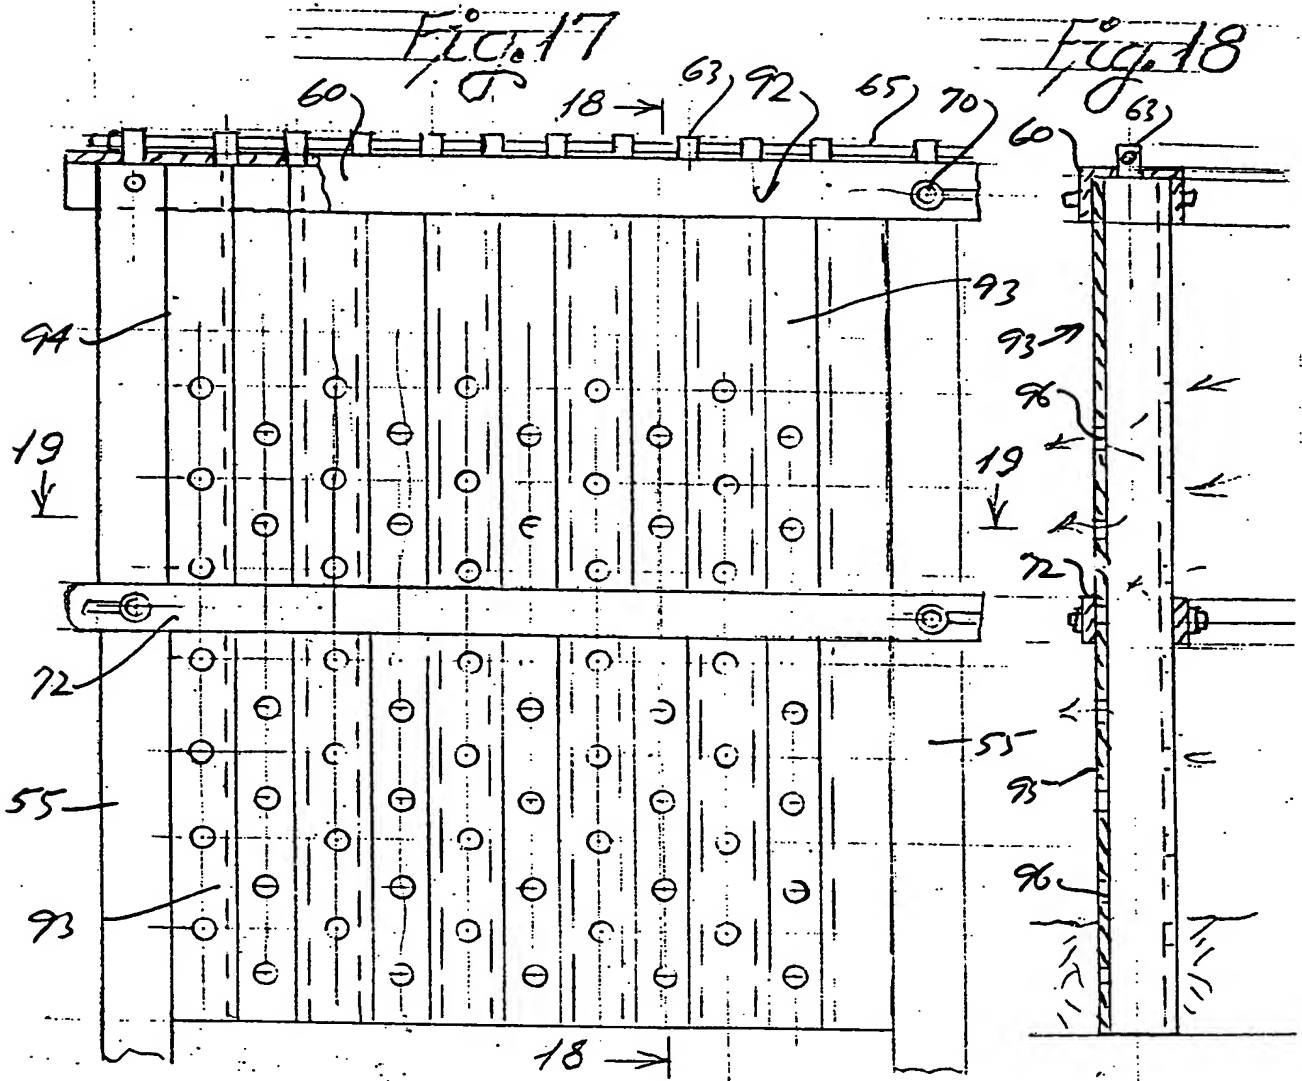 Fig. 17
Fig. 18
60
18
63
92
65
70
60
63
94
93
93
96
19
19
72
72
55
55
93
96
93
18